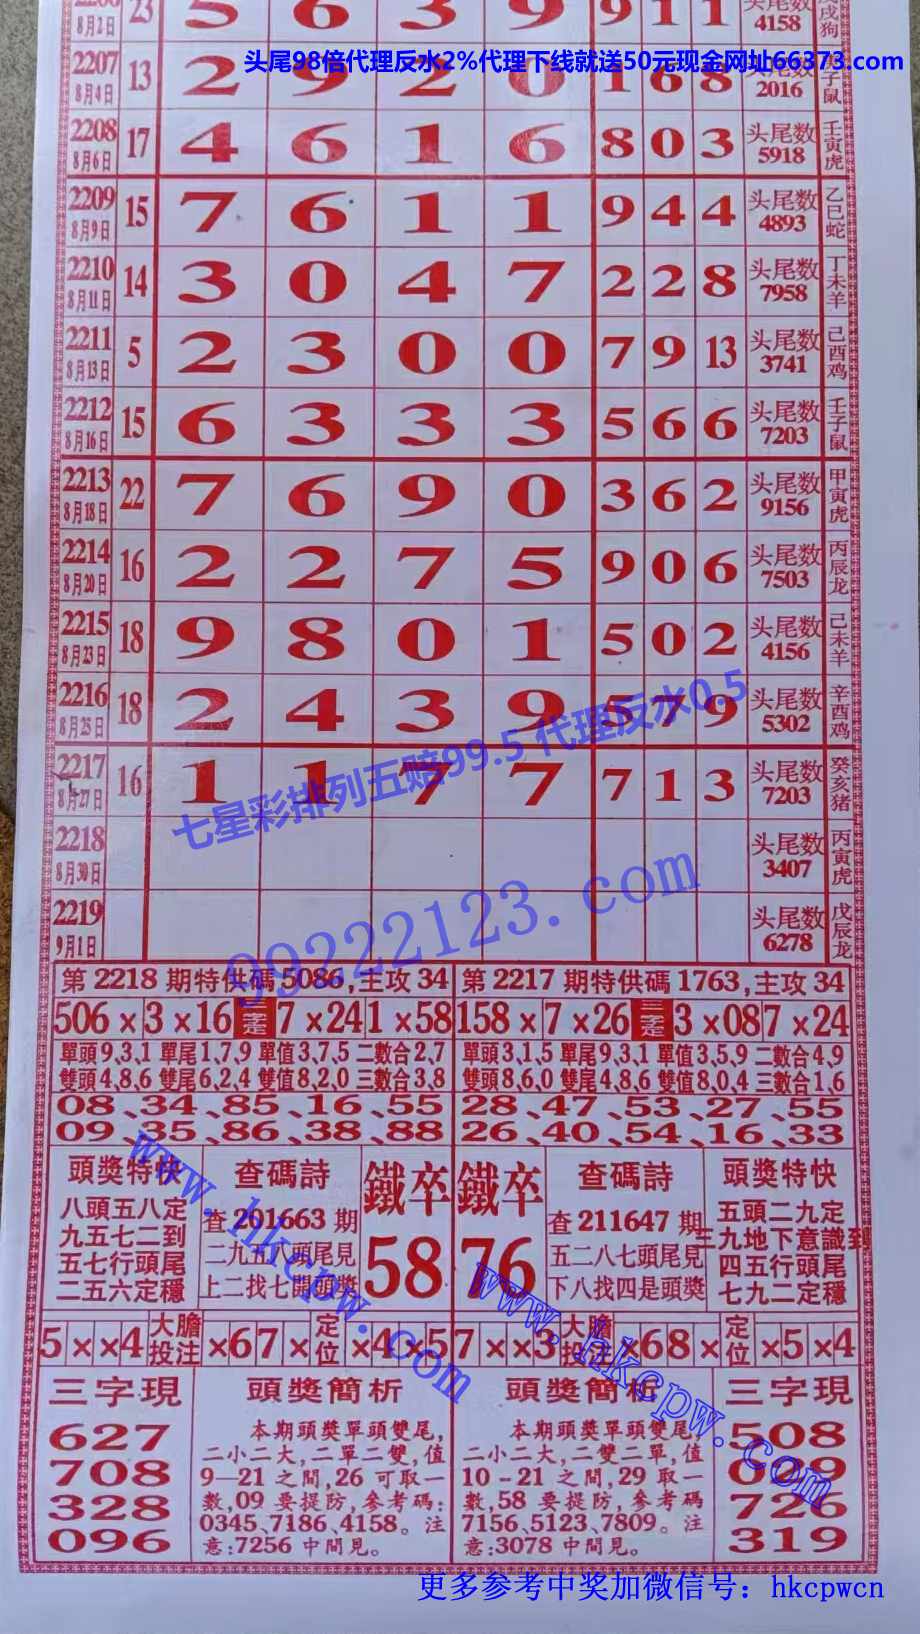 8月2日 23 5 6 3 9 9 1 1 头尾数 4158 戌狗
头尾98倍代理反水2%代理下线就送50元现金网址66373.com
2207 8月4日 13 2 9 2 0 1 6 8 头尾数 2016 子鼠
2208 8月6日 17 4 6 1 6 8 0 3 头尾数 5918 壬寅虎
2209 8月9日 15 7 6 1 1 9 4 4 头尾数 4893 乙巳蛇
2210 8月11日 14 3 0 4 7 2 2 8 头尾数 7958 丁未羊
2211 8月13日 5 2 3 0 0 7 9 13 头尾数 3741 己酉鸡
2212 8月16日 15 6 3 3 3 5 6 6 头尾数 7203 壬子鼠
2213 8月18日 22 7 6 9 0 3 6 2 头尾数 9156 甲寅虎
2214 8月20日 16 2 2 7 5 9 0 6 头尾数 7503 丙辰龙
2215 8月23日 18 9 8 0 1 5 0 2 头尾数 4156 己未羊
2216 8月25日 18 2 4 3 9 5 7 9 头尾数 5302 辛酉鸡
七星彩排列五赔99.5 代理反水0.5
2217 8月27日 16 1 1 7 7 7 1 3 头尾数 7203 癸亥猪
2218 8月30日 头尾数 3407 丙寅虎
2219 9月1日 头尾数 6278 戊辰龙
99222123.com
第2218期特供碼5086,主攻34
506×3×16 二字定 7×241×58
單頭9,3,1 單尾1,7,9 單值3,7,5 二數合2,7
雙頭4,8,6 雙尾6,2,4 雙值8,2,0 三數合3,8
08、34、85、16、55
09、35、86、38、88
第2217期特供碼1763,主攻34
158×7×26 三字定 3×087×24
單頭3,1,5 單尾9,3,1 單值3,5,9 二數合4,9
雙頭8,6,0 雙尾4,8,6 雙值8,0,4 三數合1,6
28、47、53、27、55
26、40、54、16、33
www.hkcpw.com
頭獎特快
八頭五八定
九五七二到
五七行頭尾
二五六定穩
查碼詩
查201663期
二九五八頭尾見
上二找七開頭獎
鐵卒
58
鐵卒
76
查碼詩
查211647期
五二八七頭尾見
下八找四是頭獎
頭獎特快
五頭二九定
三九地下意識到
四五行頭尾
七九二定穩
www.hkcpw.com
5××4 大膽投注 ×67× 定位 ×4×5
7××3 大膽投注 ×68× 定位 ×5×4
三字現
627
708
328
096
頭獎簡析
本期頭獎單頭雙尾,
二小二大,二單二雙,值
9—21之間,26可取一
數,09要提防,參考碼:
0345、7186、4158。注
意:7256中間見。
頭獎簡析
本期頭獎單頭雙尾,
二小二大,二雙二單,值
10-21之間,29取一
數,58要提防,參考碼:
7156、5123、7809。注
意:3078中間見。
三字現
508
009
726
319
更多参考中奖加微信号: hkcpwcn